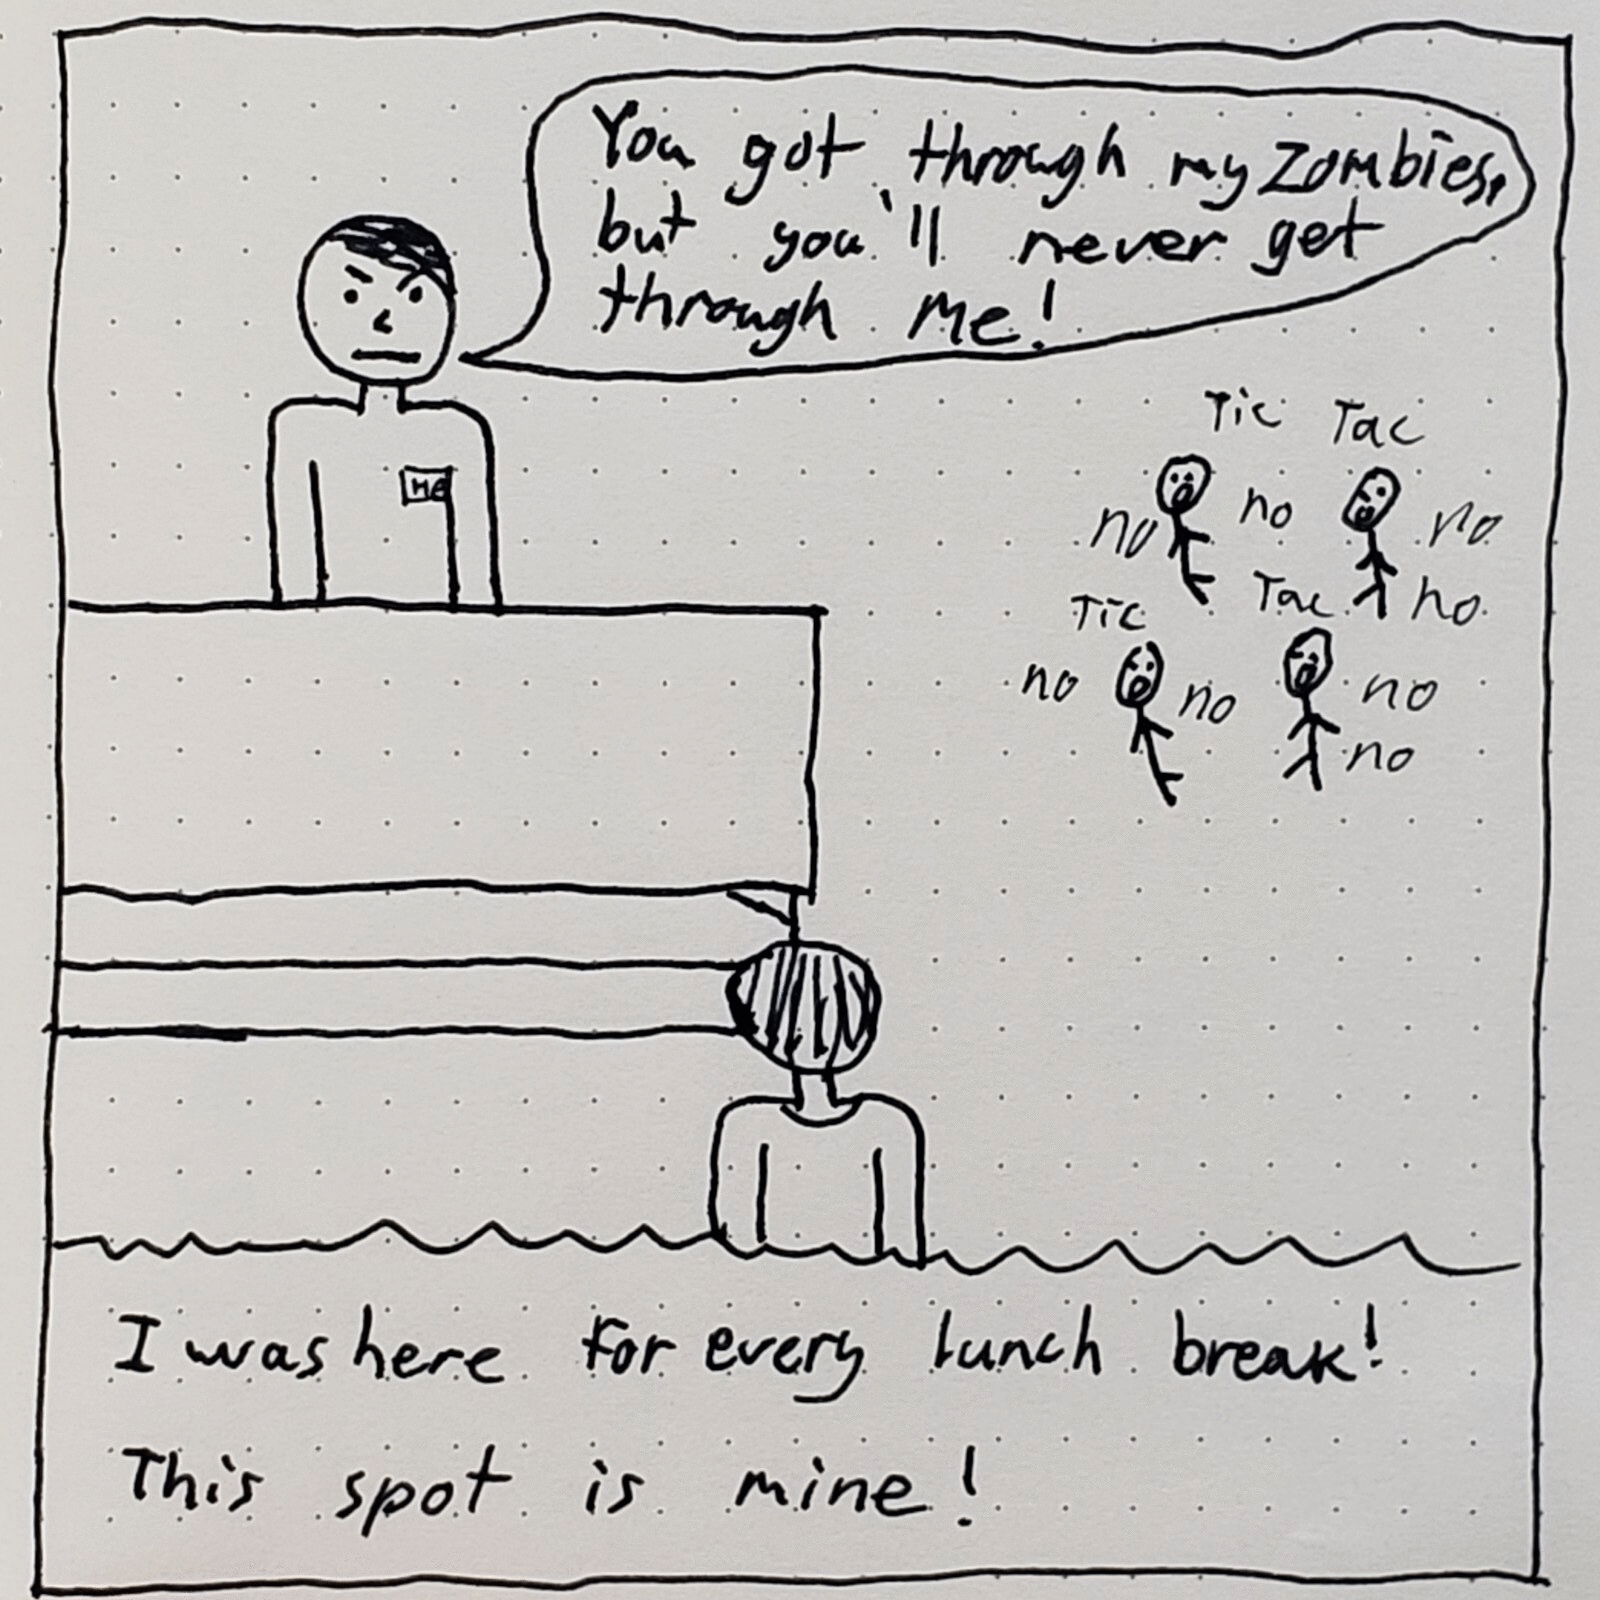 You got through my Zombies,
but you'll never get
through me!
Tic Tac
no no no
Tic Tac no
no no no
no
I was here for every lunch break!
This spot is mine!